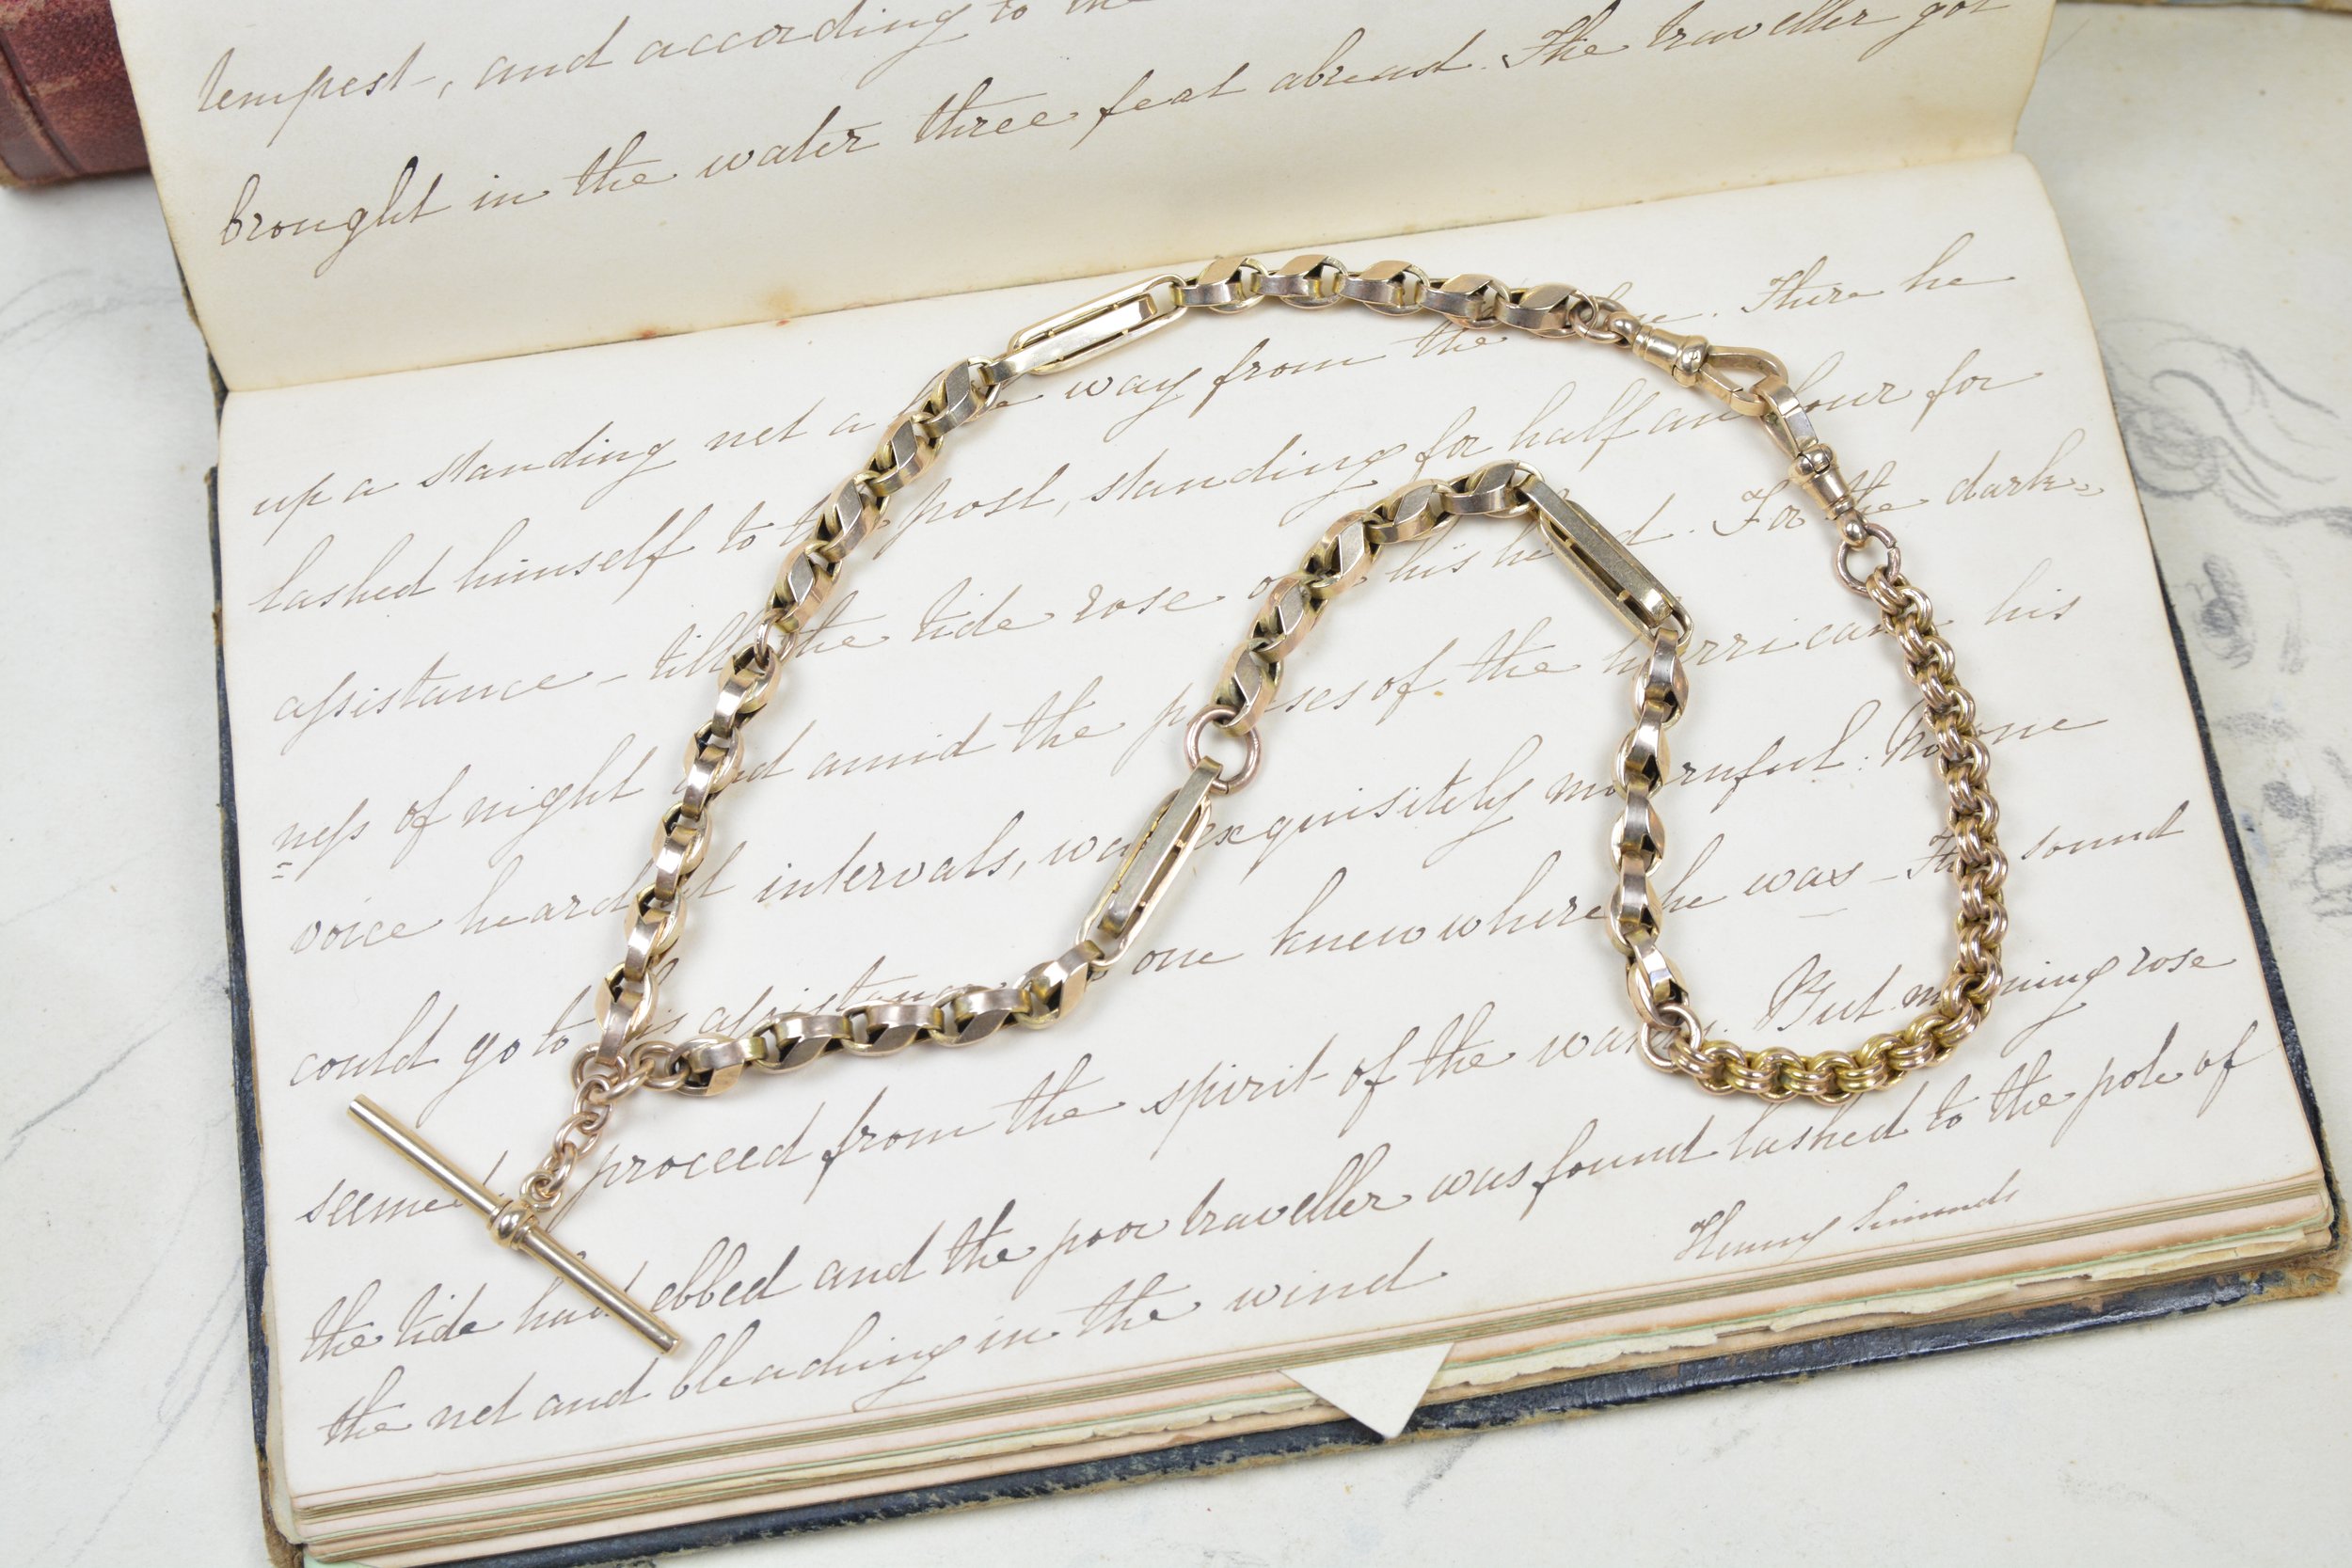 tempest, and according to the
brought in the water three feet abreast. The traveller got
up a standing net a way from the . There he
lashed himself to the post, standing for half an hour for
assistance - till the tide rose his head. For the dark=
=ness of night and amid the pauses of the hurricane his
voice heard at intervals, was exquisitely mournful: No one
could go to his assistance one knew where he was - The sound
seemed proceed from the spirit of the waters. But morning rose
the tide had ebbed and the poor traveller was found lashed to the pole of
the net and bleaching in the wind
Henry Simonds